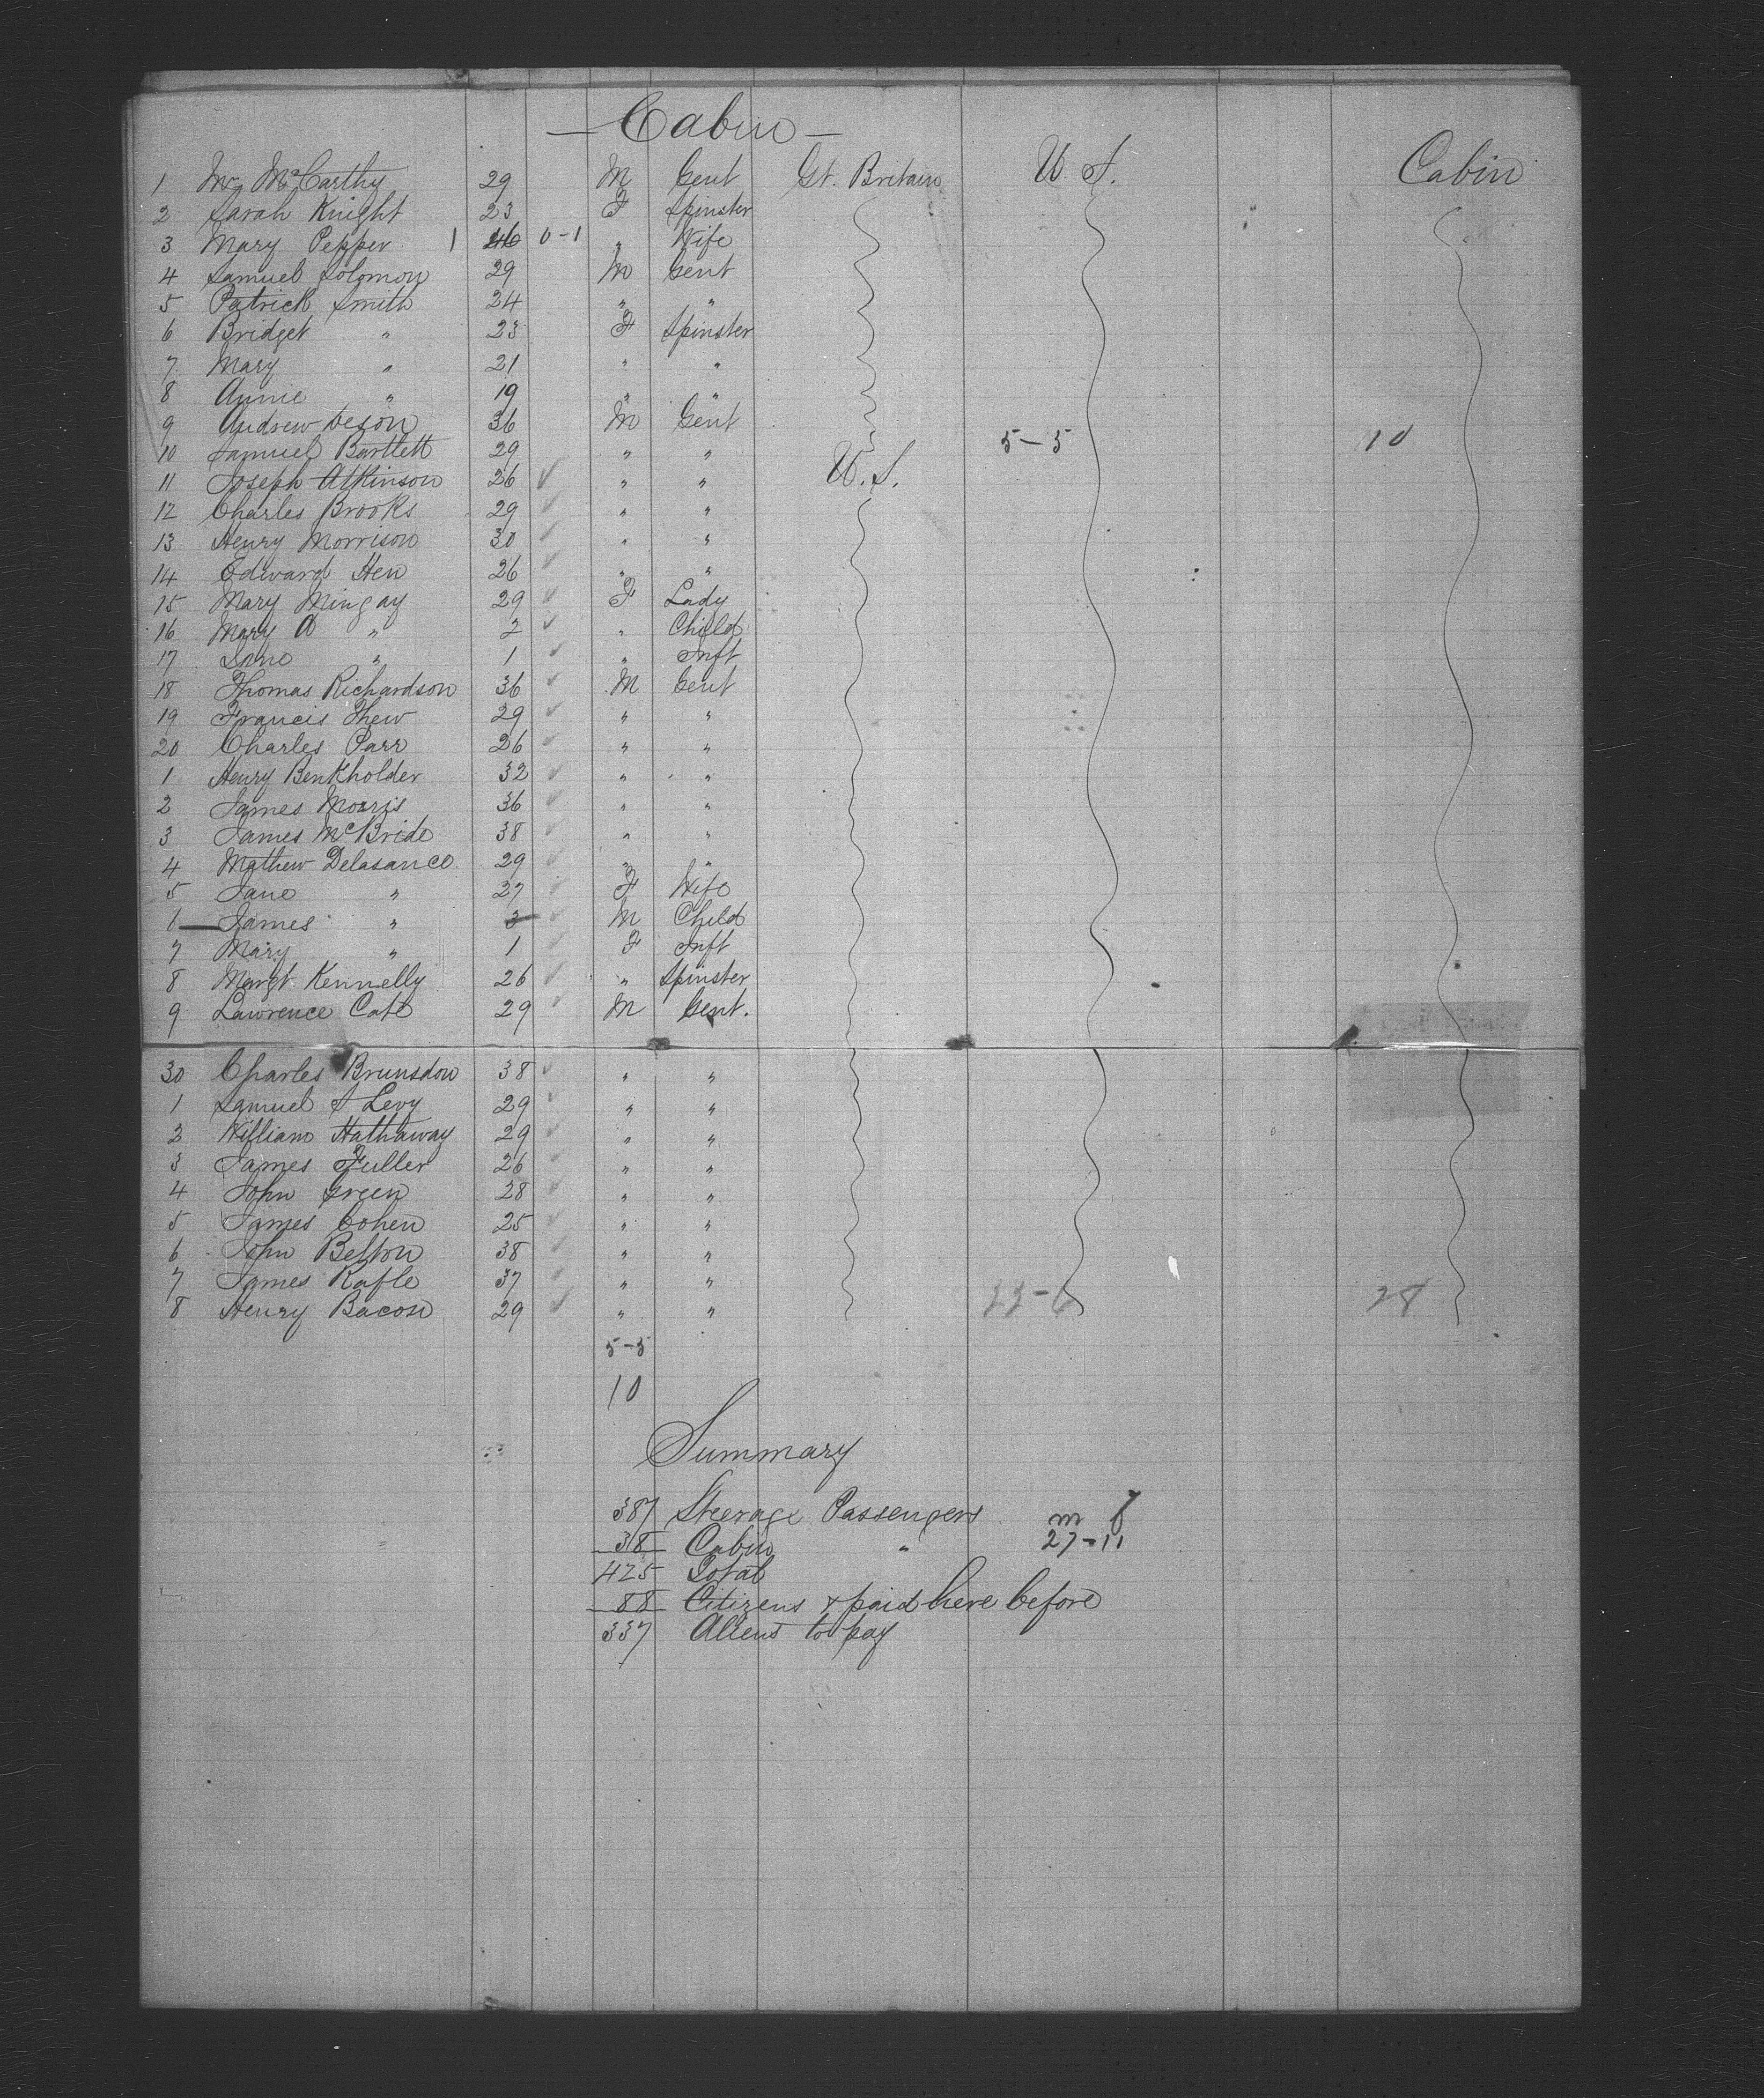 — Cabin —
1 Mr McCarthy 29 M Gent Gt. Britain U. S. Cabin
2 Sarah Knight 23 F Spinster
3 Mary Pepper 1 46 0-1 " Wife
4 Samuel Solomon 29 M Gent
5 Patrick Smith 24 " "
6 Bridget " 23 F Spinster
7 Mary " 21 " "
8 Annie " 19 " "
9 Andrew 36 M Gent
10 Samuel Bartlett 29 " " 5-5 10
11 Joseph Atkinson 26 " " U. S.
12 Charles Brooks 29 " "
13 Henry Morrison 30 " "
14 Edward Hen 26 " "
15 Mary Mingay 29 F Lady
16 Mary A " 2 " Child
17 Jane " 1 " Inft
18 Thomas Richardson 36 M Gent
19 Francis Thew 29 " "
20 Charles Parr 26 " "
1 Henry Benkholder 32 " "
2 James Morris 36 " "
3 James McBride 38 " "
4 Mathew Delasance 29 " "
5 Jane " 27 F Wife
1 James " 3 M Child
7 Mary " 1 F Inft
8 Margt Kennelly 26 " Spinster
9 Lawrence Cate 29 M Gent.
30 Charles Brunsdon 38 " "
1 Samuel S Levy 29 " "
2 William Hathaway 29 " "
3 James Fuller 26 " "
4 John Green 28 " "
5 James Cohen 25 " "
6 John Belton 38 " "
7 James Kafle 37 " "
8 Henry Bacon 29 " " 22-6 28
5-5
10
Summary
387 Steerage Passengers m f
38 Cabin " 27-11
425 Total
88 Citizens & paid here before
337 Aliens to pay